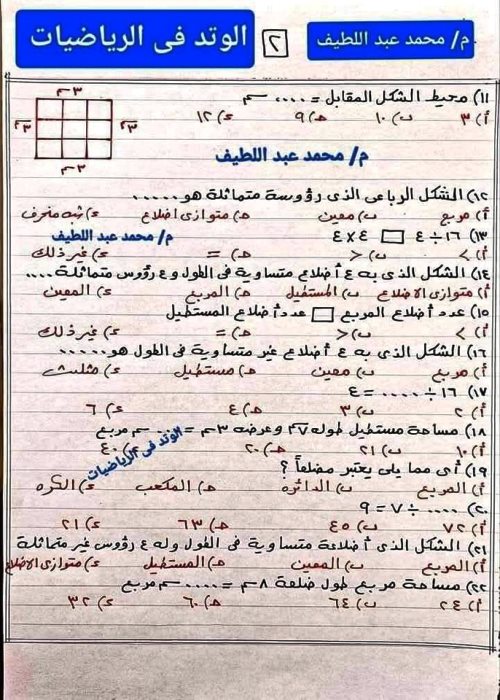 م/ محمد عبد اللطيف ٢ الوتد فى الرياضيات
١١) محيط الشكل المقابل = .... سم
أ) ٣ ب) ١٠ هـ) ٩ ء) ١٢
٣سم
٣سم
٣سم
٣سم
م/ محمد عبد اللطيف
١٢) الشكل الرباعى الذى رؤوسة متماثلة هو .....
أ) مربع ب) معين هـ) متوازى اضلاع ء) شبه منحرف
١٣) ١٦ ÷ ٤ □ ٤ × ٤ م/ محمد عبد اللطيف
أ) > ب) < هـ) = ء) غير ذلك
١٤) الشكل الذى به ٤ أضلاع متساوية فى الطول و ٤ رؤوس متماثلة ....
أ) متوازى الاضلاع ب) المستطيل هـ) المربع ء) المعين
١٥) عدد أضلاع المربع □ عدد أضلاع المستطيل
أ) > ب) < هـ) = ء) غير ذلك
١٦) الشكل الذى به ٤ أضلاع غير متساوية فى الطول هو .....
أ) مربع ب) معين هـ) مستطيل ء) مثلث
١٧) ١٦ ÷ .... = ٤
أ) ٢ ب) ٣ هـ) ٤ ء) ٦
١٨) مساحة مستطيل طوله ٧سم وعرضه ٣سم = .... سم مربع
أ) ١٠ ب) ٢١ هـ) ٢٠ ء) ٤٠
الوتد فى الرياضيات
١٩) أى مما يلى يعتبر مضلعاً ؟
أ) المربع ب) الدائرة هـ) المكعب ء) الكره
٢٠) .... ÷ ٧ = ٩
أ) ٧٢ ب) ٤٥ هـ) ٦٣ ء) ٢١
٢١) الشكل الذى أضلاعة متساوية فى الطول وله ٤ رؤوس غير متماثلة
أ) المربع ب) المعين هـ) المستطيل ء) متوازى الاضلاع
٢٢) مساحة مربع طول ضلعة ٨سم = .... سم مربع
أ) ٢٤ ب) ٦٤ هـ) ٦٠ ء) ٣٢